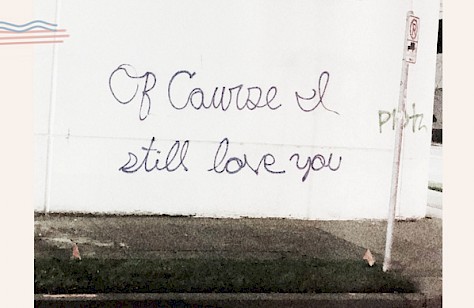 Of Course I
still love you